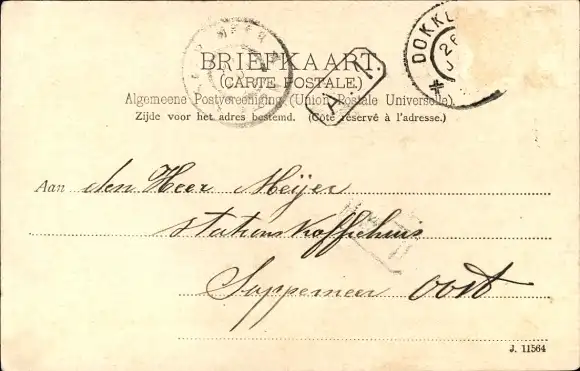 DOKK
26
BRIEFKAART.
(CARTE POSTALE.)
Algemeene Postvereeniging (Union Postale Universelle).
Zijde voor het adres bestemd. (Côté réservé à l'adresse.)
Aan den Heer Meijer
Stationskoffiehuis
Sappemeer Oost
J. 11564